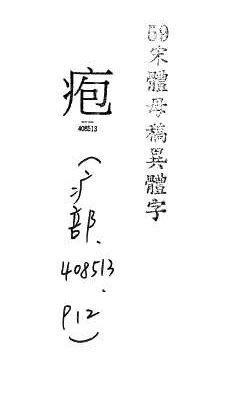 59宋體母稿異體字
疱
408513
(疒部、
408513、
P12)